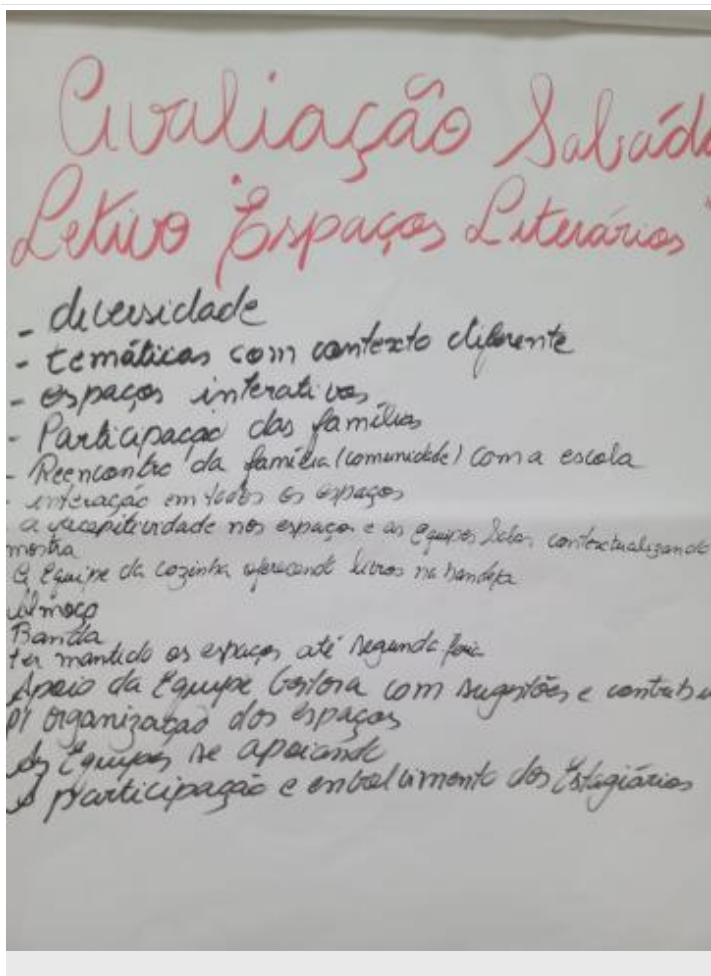 Avaliação Sabád
Letivo "Espaços Literários"
- diversidade
- temáticas com contexto diferente
- espaços interativos
- Participação das famílias
- Reencontro da família (comunidade) com a escola
- interação em todos os espaços
a nos espaços e as Equipes contextualizando
mostra
A Equipe da cozinha oferecendo livros na bandeja
Almoço
Banda
ter mantido os espaços até segunda feira
Apoio da Equipe Gestora com sugestões e contribu
p/ organização dos espaços
As Equipes se apoiando
A participação e envolvimento dos Estagiários